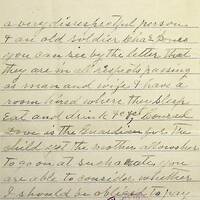 a very disrespectful person
& an old soldier Chas Jones
you can see by the letter that
they are in all respects passing
as man and wife & have a
room hired where they Sleep
Eat and drink &c &c Conrad
Love is the Guardian for the
child yet the mother allows her
to go on at such a rate, you
are able to consider whether
I should be obliged to pay